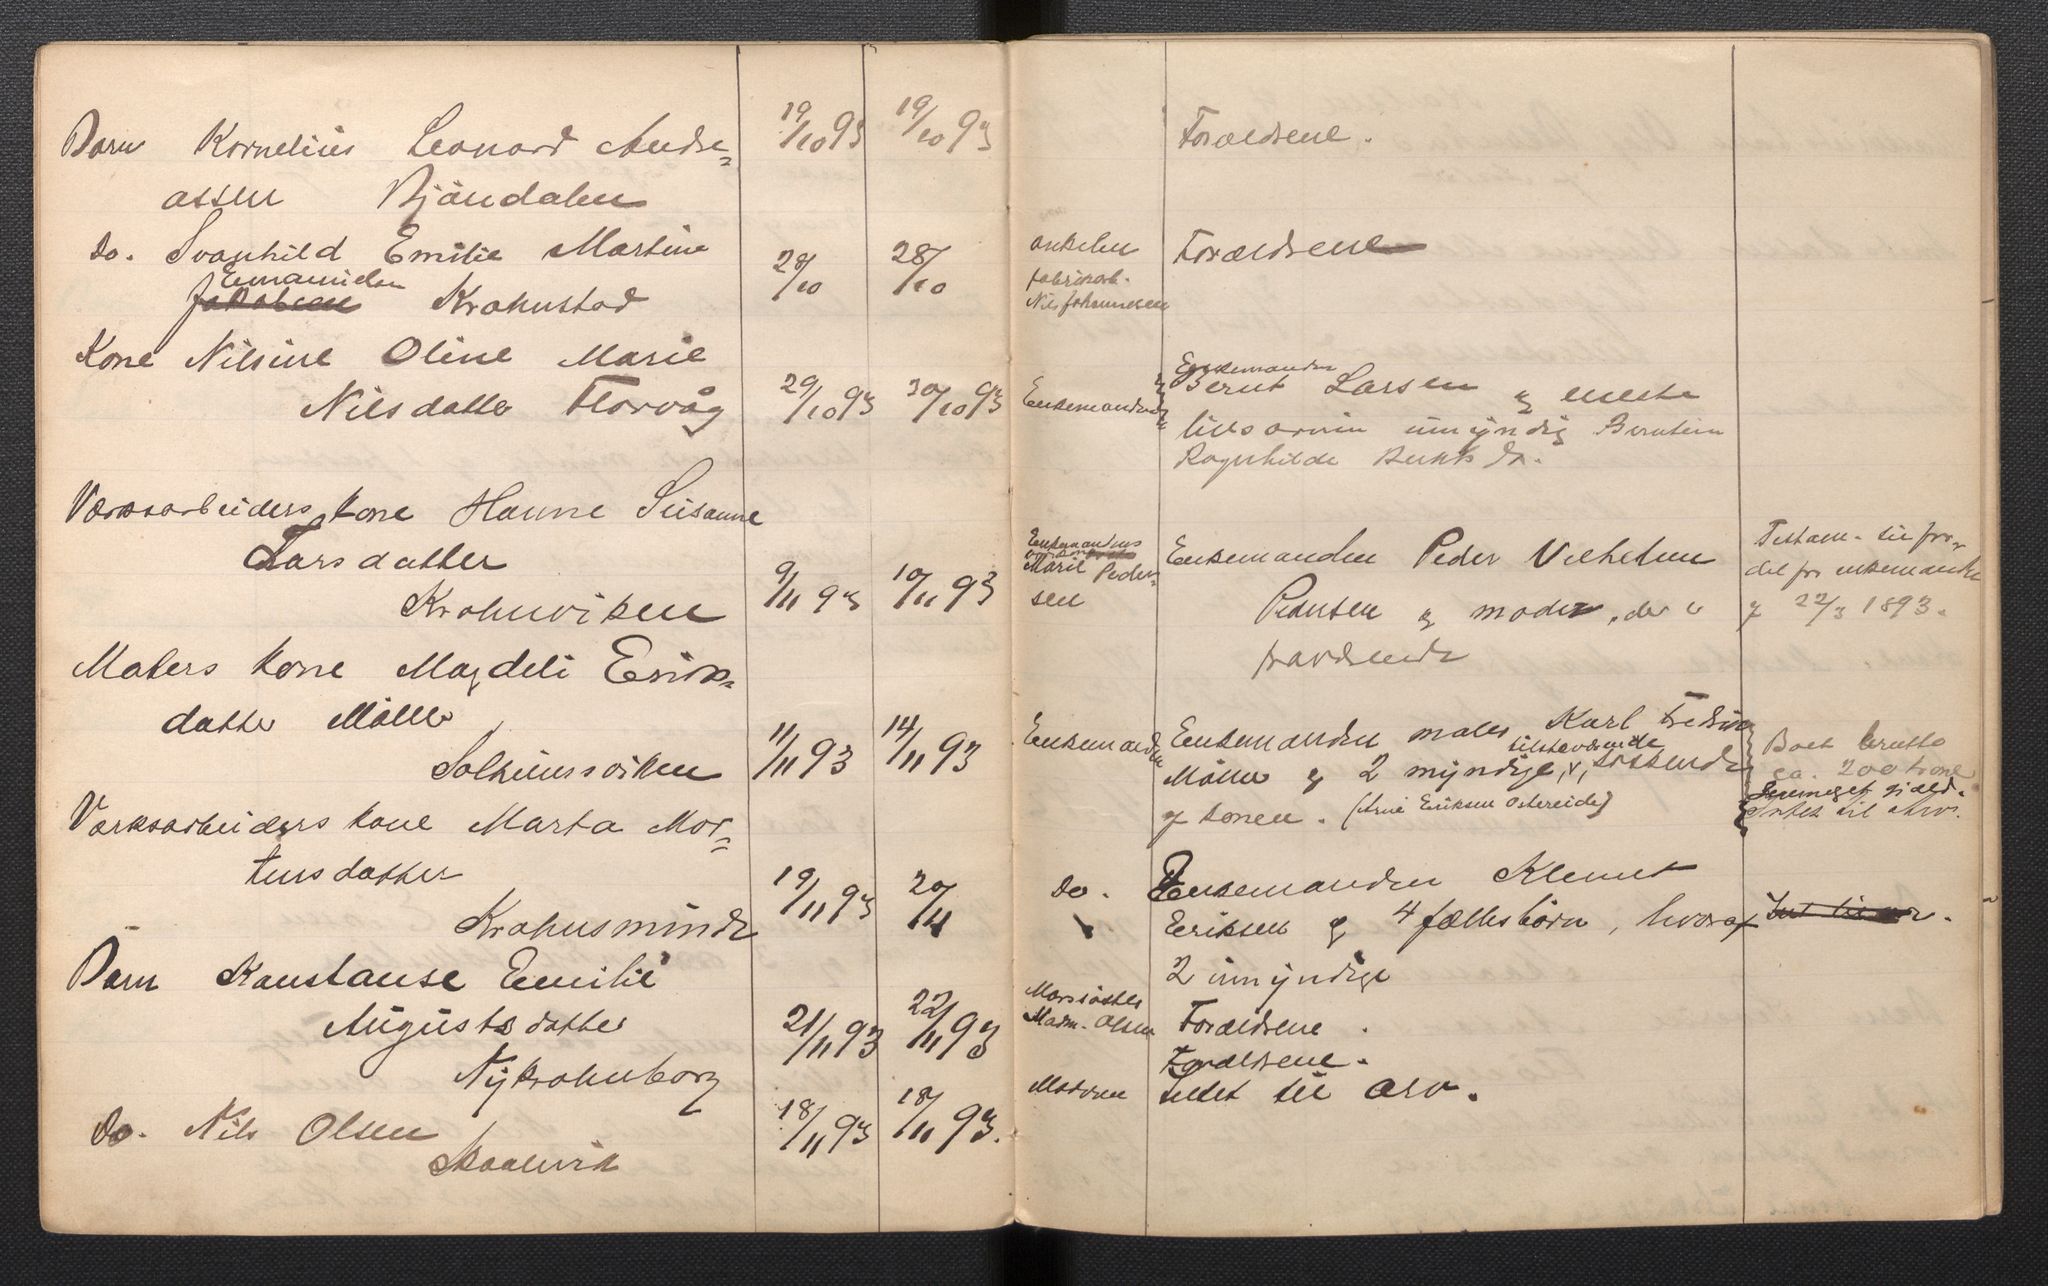 Barn Kornelius Leonard Andre-
assen Bjöndalen
19/10 93
19/10 93
Forældrene.
Do. Svanhild Emilie Martine
Emanuelsen
Jakobsen Krohnstad
28/10
28/10
onkelen
fabrikarb.
Nils Johannesen
Forældrene
Kone Nilsine Oline Marie
Nilsdatter Florvåg
29/10 93
30/10 93
Enkemanden
Enkemanden
Bernt Larsen og eneste
livsarving umyndig Berntine
Ragnhilde Bernts Dr.
Værksarbeiders kone Hanne Susanne
Larsdatter
Krohnviken
9/11 93
10/11 93
Enkemandens
Marie Peder-
sen
Enkemanden Peder Vilhelm
Pedersen og moder, der er
fraværende
Testam. til for-
del for enkemanden
af 22/3 1893.
Malers kone Magdeli Eriks-
datter Möller
Solheimsviken
11/11 93
14/11 93
Enkemanden
Enkemanden maler Karl Fredrik
tilstedværende
Möller og 2 myndige, søskende
af konen. (Arne Eriksen Ostereide)
Boet brutto
ca. 200 kroner
Saameget gjæld.
Intet til arv.
Værksarbeiders kone Marta Mor-
tensdatter
Krohnsminde
19/11 93
20/11
Do.
Enkemanden Klemet
Eriksen og 4 fællesbörn, hvoraf
2 umyndige
Int til arv.
Barn Konstanse Emilie
Augustsdatter
Nykrohnborg
21/11 93
22/11 93
Morsöster
Madm. Olsen
Forældrene.
Do. Nils Olsen
Skaalevik
18/11 93
18/11 93.
Moderen
Forældrene.
Intet til arv.